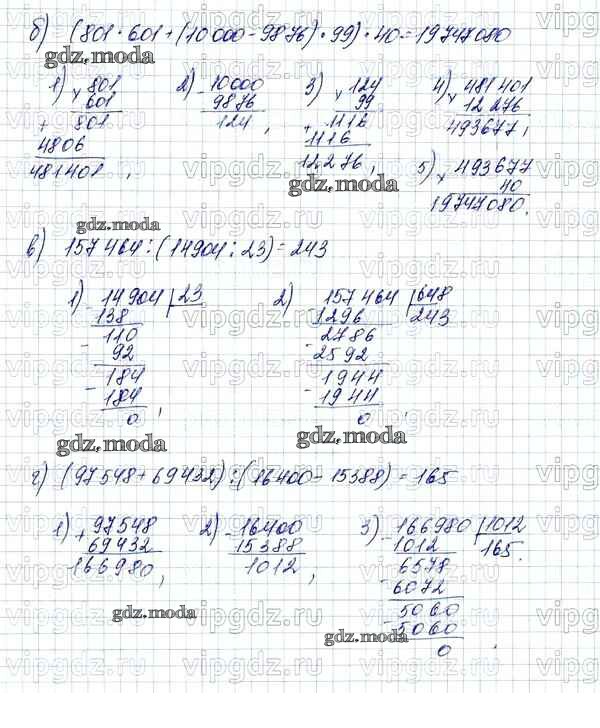 б) (801 · 601 + (10 000 - 9876) · 99) · 40 = 19747080
gdz.moda
1) × 801
601
+ 801
4806
481401,
2) - 10000
9876
124,
3) × 124
99
+ 1116
1116
12276,
4) × 481401
12276
493677,
5) × 493677
40
19747080.
gdz.moda
gdz.moda
в) 157464 : (14904 : 23) = 243
1) - 14904 | 23
138
110
- 92
184
- 184
0,
2) - 157464 | 648
1296 243
2786
- 2592
1944
- 1944
0,
gdz.moda
gdz.moda
г) (97548 + 69432) : (16400 - 15388) = 165
1) + 97548
69432
166980,
2) - 16400
15388
1012,
3) - 166980 | 1012
1012 165.
6578
- 6072
5060
- 5060
0
gdz.moda
gdz.moda
vipgdz.ru